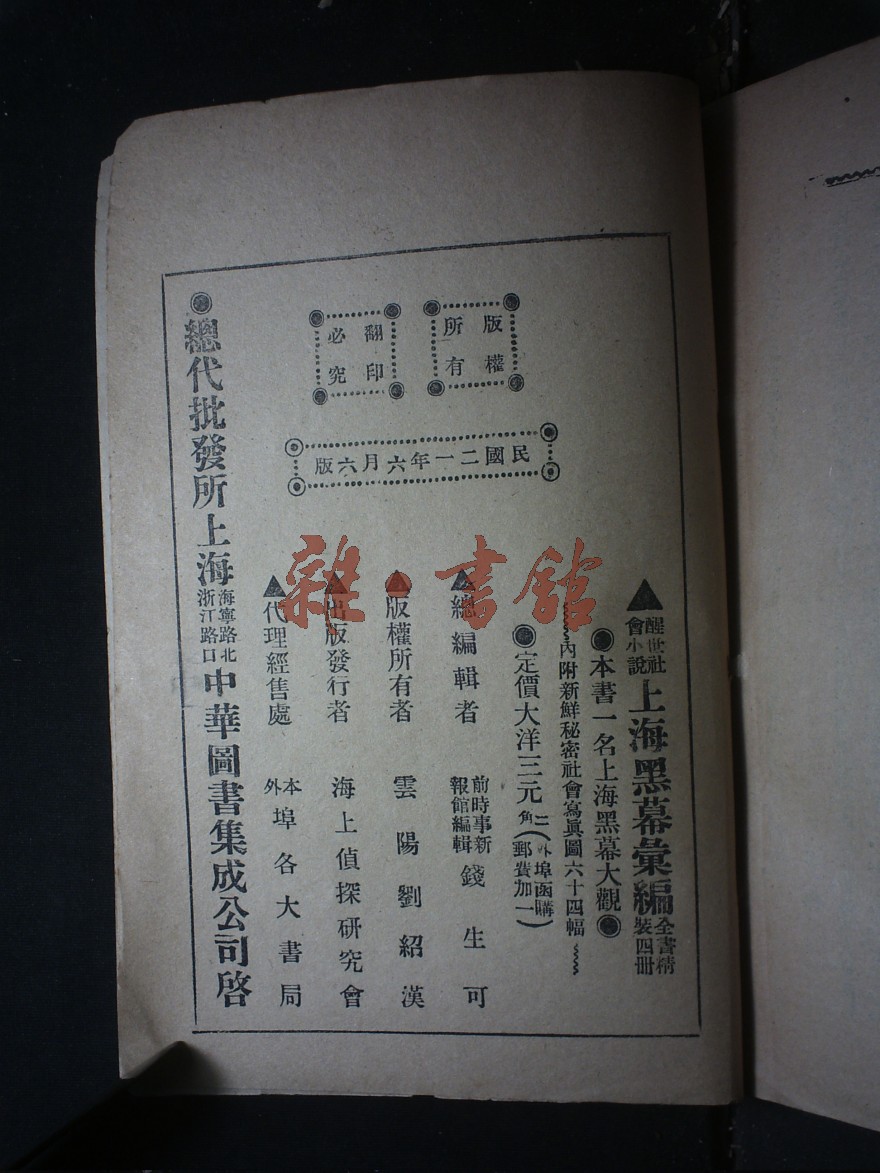 版權所有
翻印必究
民國二一年六月六版
▲醒世社會小說 上海黑幕彙編 全書精裝四冊
●本書一名上海黑幕大觀●
內附新鮮秘密社會寫眞圖六十四幅
●定價大洋三元二角(外埠函購郵費加一)
▲總編輯者 前時事新報館編輯 錢生可
▲版權所有者 雲陽劉紹漢
▲出版發行者 海上偵探研究會
▲代理經售處 本外埠各大書局
●總代批發所上海海寧路北浙江路口中華圖書集成公司啓
雜·書館